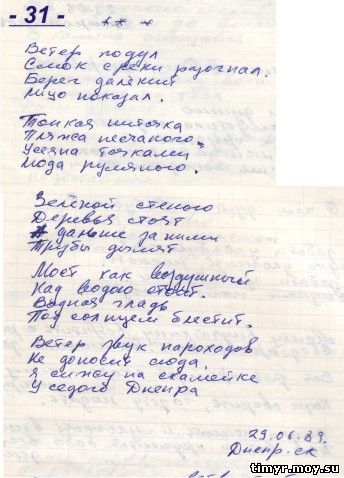 - 31 -
* * *
Ветер подул
Смок с реки разогнал.
Берег далёкий
Лицо показал.
Тонкая ниточка
Пляжа песчаного,
Усеяна точками
Люда румяного.
Зелёной стеною
Деревья стоят
А дальше за ними
Трубы дымят
Мост как воздушный
Над водою стоит.
Водная гладь
Под солнцем блестит.
Ветер звук пароходов
Не доносит сюда,
Я сижу на скамейке
У седого Днепра
29.06.89.
Днепр-ск
timyr.moy.su